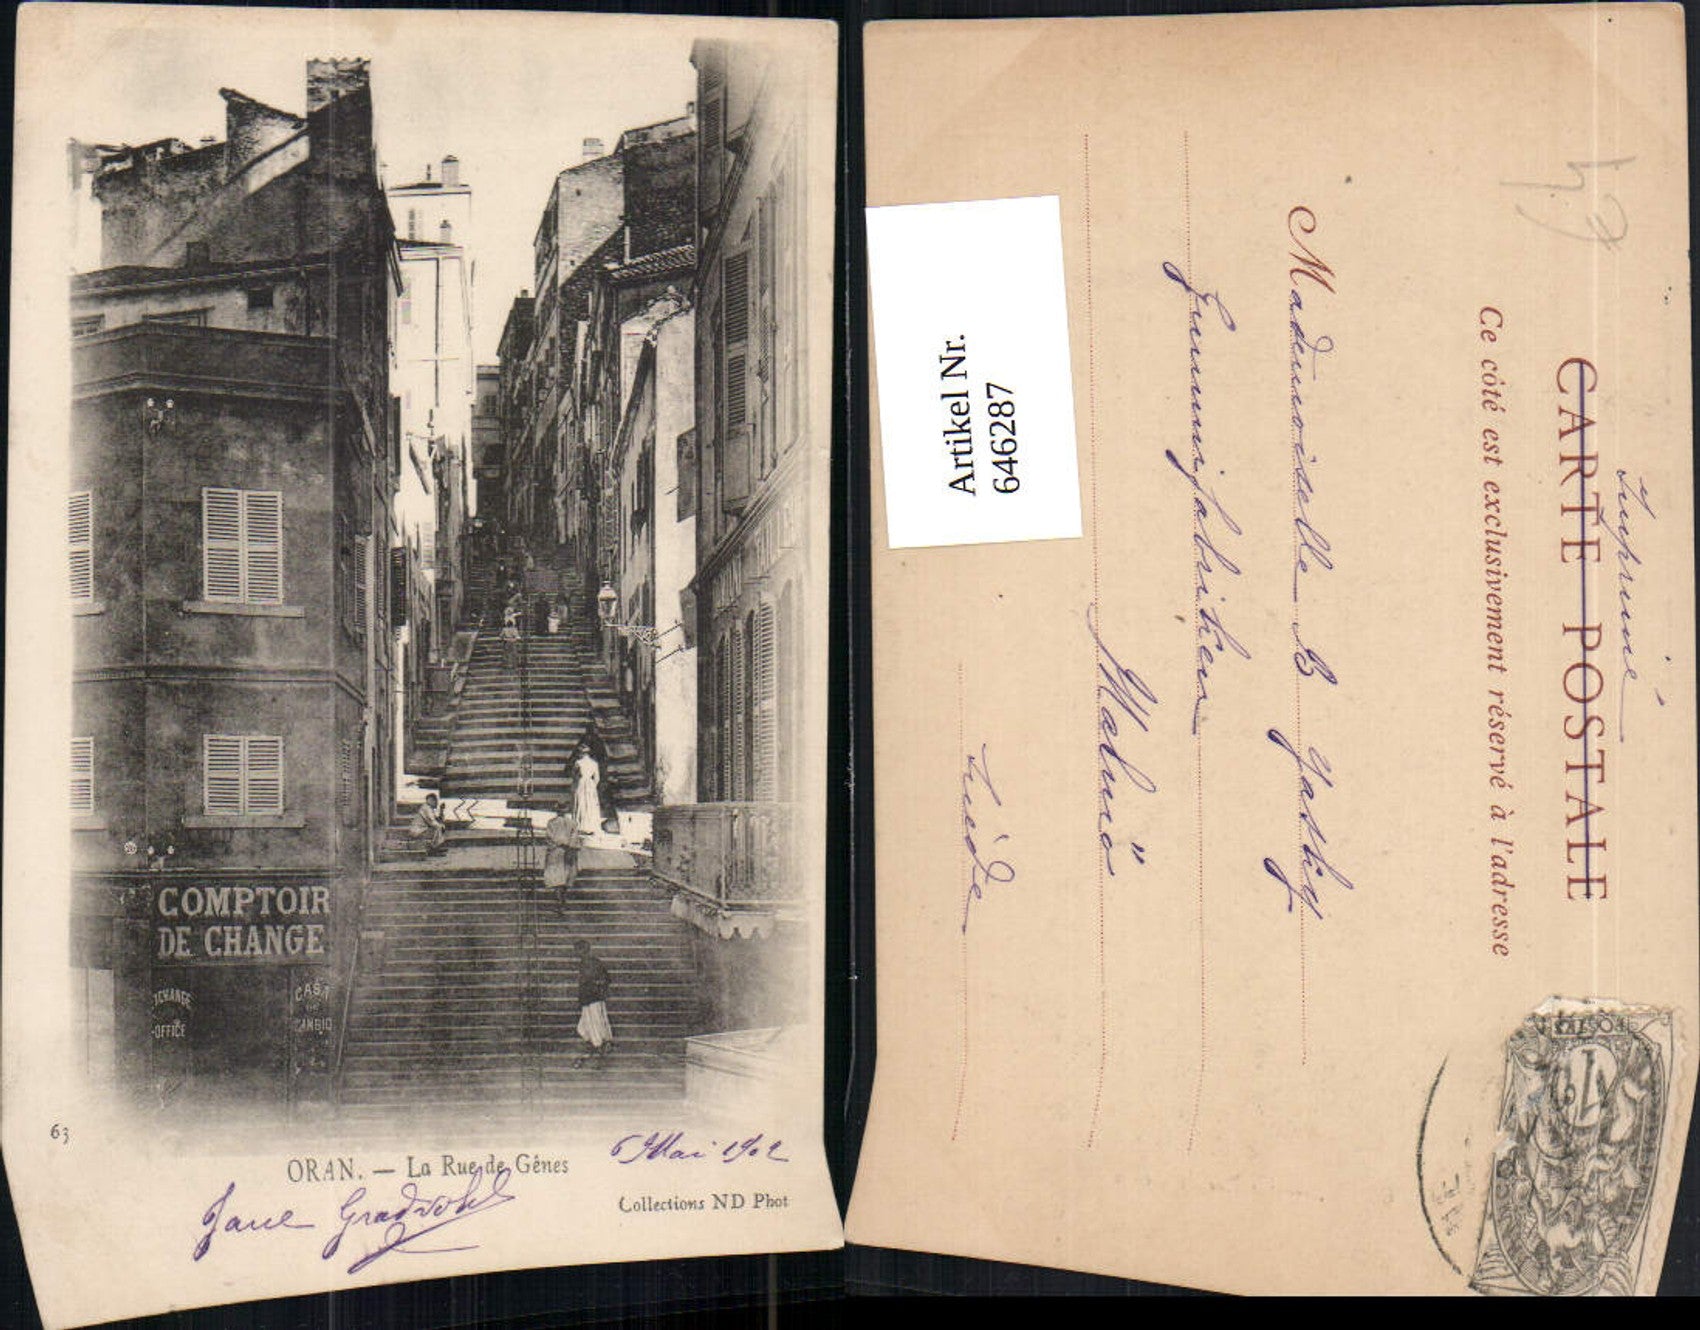 COMPTOIR
DE CHANGE
OFFICE
CASA
CAMBIO
63
ORAN. — La Rue de Gênes
6 Mai 1902
Collections ND Phot
Jane
Artikel Nr.
646287
Imprimé
CARTE POSTALE
Ce côté est exclusivement réservé à l'adresse
Mademoiselle B
Malmö
Suède